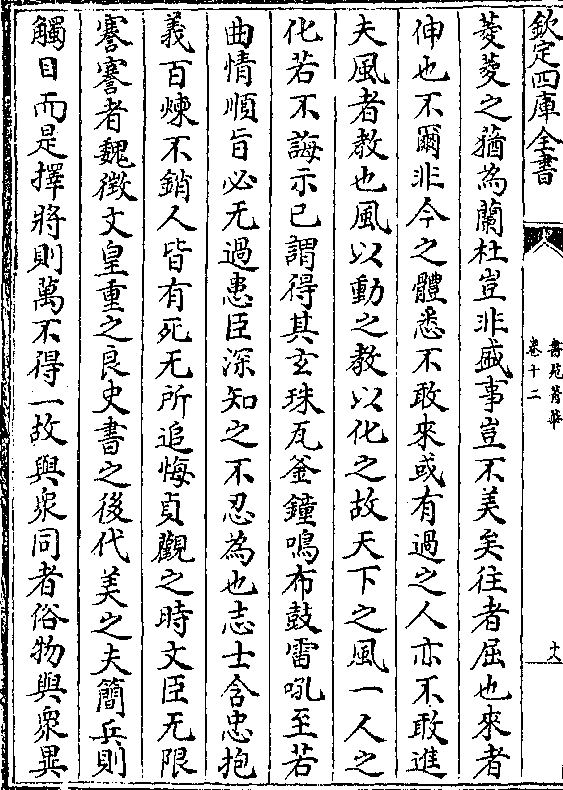 欽定四庫全書
書苑菁華
卷十二
十八
菱菱之蕕為蘭杜豈非盛事豈不美矣往者屈也來者
伸也不爾非今之體悉不敢來或有過之人亦不敢進
夫風者教也風以動之教以化之故天下之風一人之
化若不誨示已謂得其玄珠瓦釜鐘鳴布鼓雷吼至若
曲情順旨必无過患臣深知之不忍為也志士含忠抱
義百煉不銷人皆有死无所追悔貞觀之時文臣无限
謇謇者魏徵文皇重之良史書之後代美之夫簡兵則
觸目而是擇將則萬不得一故與衆同者俗物與衆異